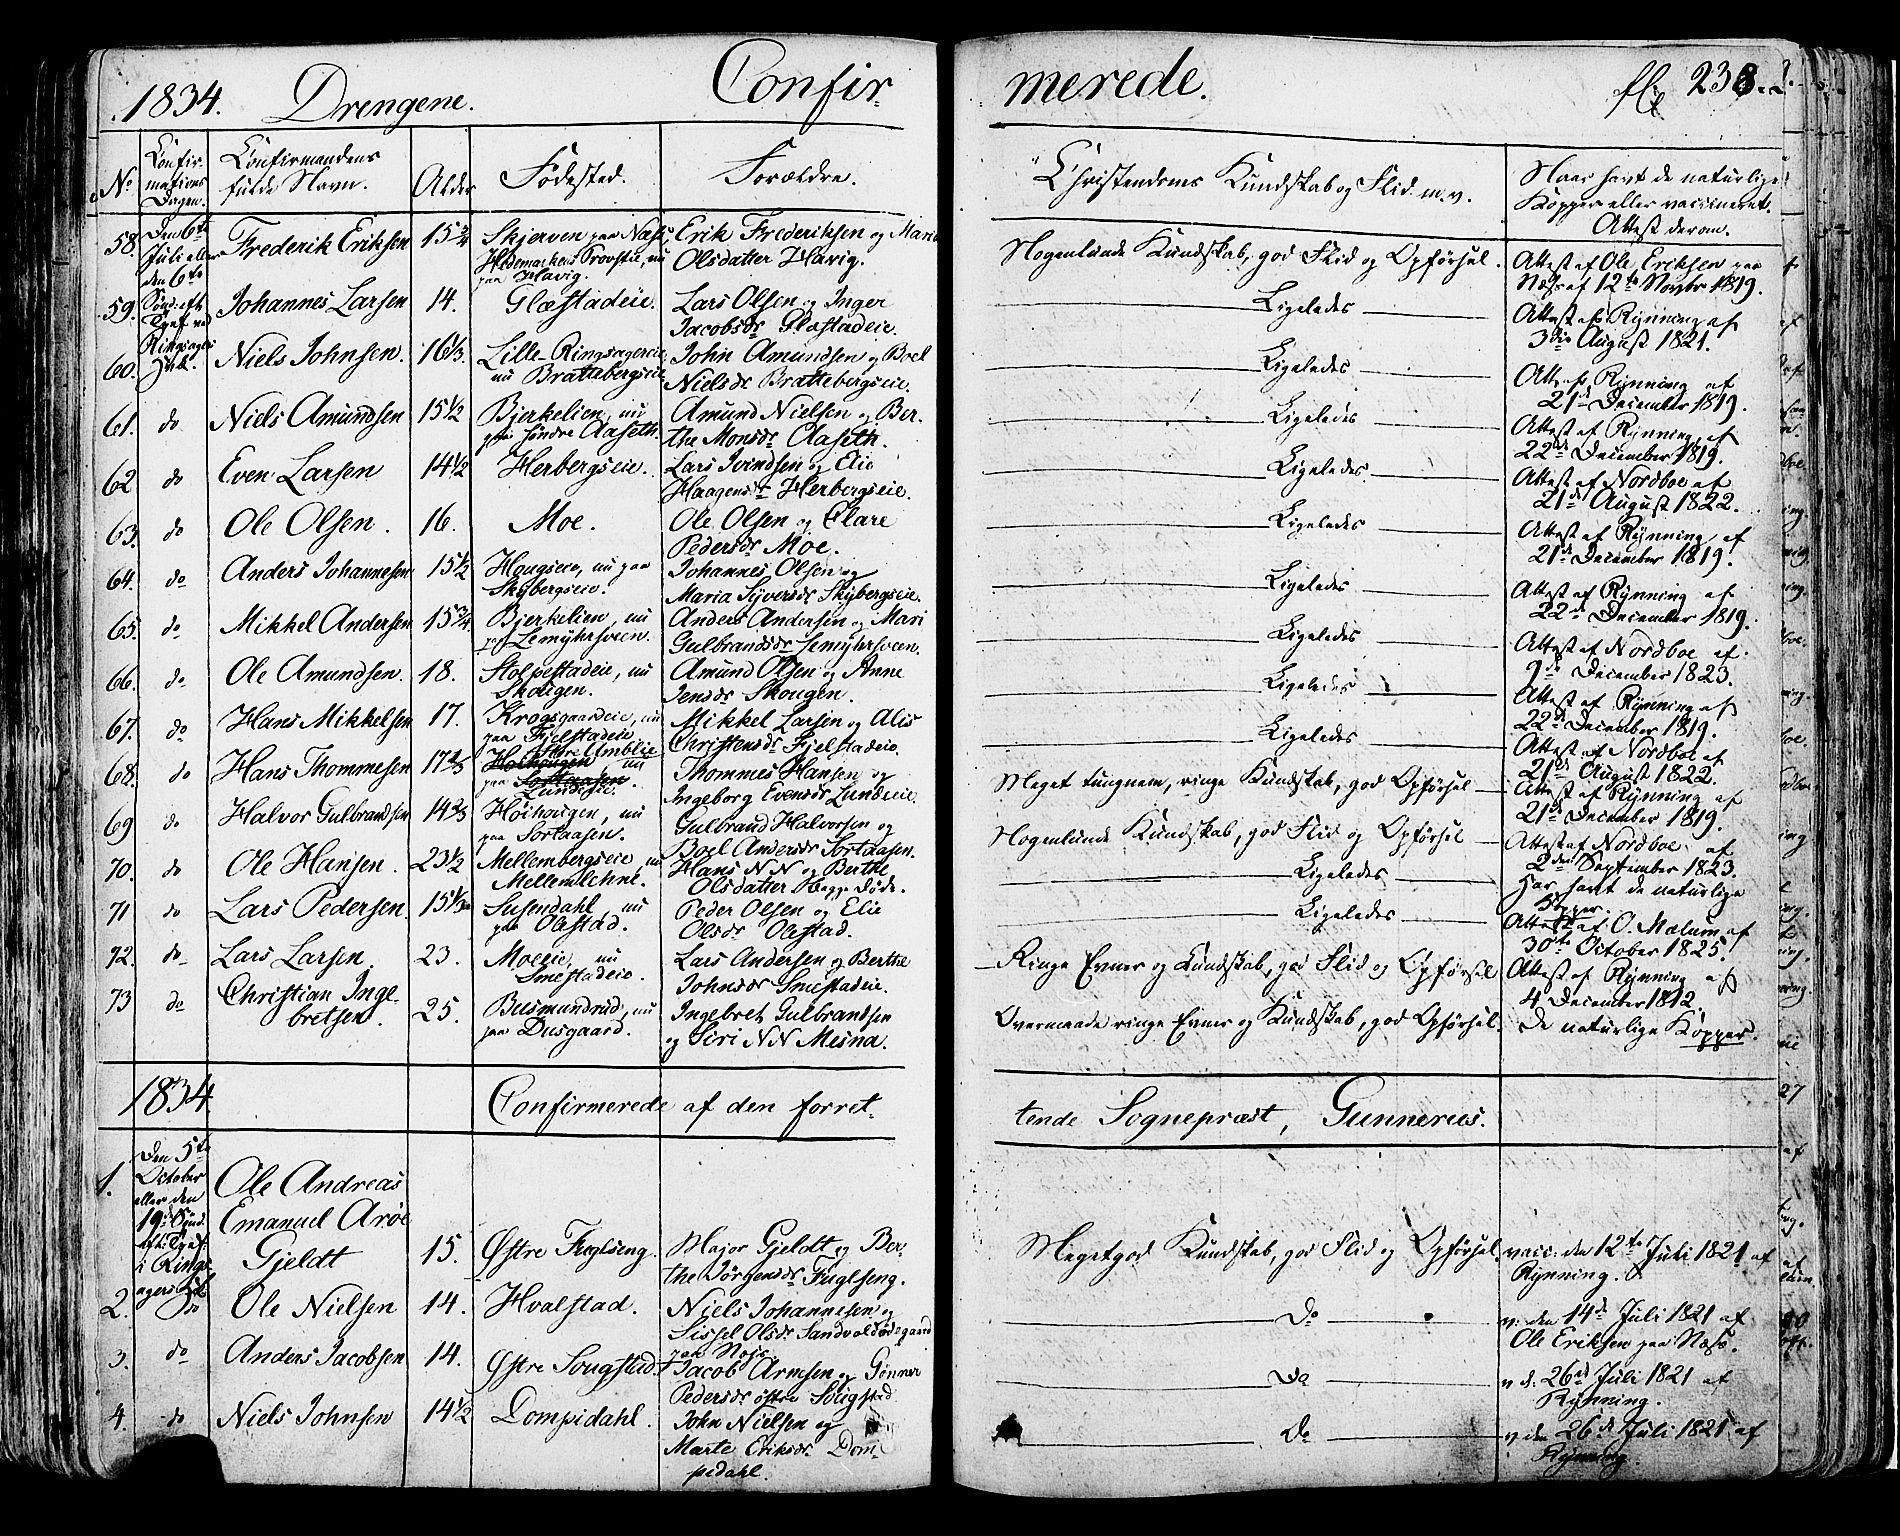 1834. Drengene. Confir-
No Confirmations Dagen. Confirmandens fulde Navn. Alder Fødested. Forældre.
58. Den 6te Juli eller den 6te Frederik Eriksen 15 3/4 Skjerven paa Næss, Hedemarkens Provstie, nu paa Havig. Erik Frederiksen og Maria Olsdatter Havig.
59. Johannes Larsen 14. Glæstadeie. Lars Olsen og Inger Jacobsdr Glæstadeie.
60. Niels Johnsen. 16 1/3. Lille-Ringsagereie, nu Brattebergseie John Amundsen og Boel Nielsdr Brattebergseie.
61. do Niels Amundsen 15 1/2 Bjerkelien, nu paa søndre Aaseth. Amund Nielsen og Berthe Monsdr Aaseth.
62 do Even Larsen 14 1/2 Herbergseie. Lars Ivindsen og Elie Haagensdr Herbergseie.
63. do Ole Olsen. 16. Moe. Ole Olsen og Clare Pedersdr Moe.
64. do Anders Johannesen 15 1/2 Hougseie, nu paa Skybergseie. Johannes Olsen og Maria Syversdr Skybergseie.
65. do Mikkel Andersen 15 3/4. Bjerkelien, nu paa Lemyhrsveen. Anders Andersen og Mari Gulbrandsdr Lemyhrsveen.
66. do Ole Amundsen. 18. Stolpestadeie, nu Skougen. Amund Olsen og Anne Jensdr Skougen.
67. do Hans Mikkelsen 17. Krogsgaardeie, nu paa Fjelstadeie Mikkel Larsen og Alis Christensdr Fjelstadeie.
68. do Hans Thommesen 17 2/3 Østre Umblie nu paa Lundseie. Thommes Hansen og Ingeborg Evensdr Lundseie.
69 do Halvor Gulbrandsen 14 2/3 Høihougen, nu paa Sortaasen. Gulbrand Halvorsen og Boel Andersdr Sortaasen.
70. do Ole Hansen. 23 1/2 Mellembergseie, nu Mellemlehne. Hans N N og Berthe Olsdatter Hegge døde.
71 do Lars Pedersen. 15 1/3 Susendahl, nu paa Olestad. Peder Olsen og Elie Olsdr Olestad.
72. do Lars Larsen. 23. Moeeie, nu Smestadeie. Lars Andersen og Berthe Johnsdr Smestadeie.
73 do Christian Ingebretsen. 25. Busmundrud, nu paa Dusgaard. Ingebret Gulbrandsen og Siri N N Mesna.
1834. Confirmerede af den forret-
1. Den 5te October eller den 19de Ole Andreas Emanuel Arøe Gjeldt 15. Østre Fuglseng. Major Gjeldt og Berthe Jørgensdr Fuglseng.
2. do Ole Nielsen 14. Hvalstad. Niels Johannesen og Sissel Olsdr Sandvoldødegaard paa Næss.
3. do Anders Jacobsen 14. Østre Sougstad. Jacob Arnesen og Gønner Pedersdr østre Sougstad
4. do Niels Johnsen 14 1/2 Dompidahl. John Nielsen og Marte Eriksdr Dompidahl.
merede. 238.
Christendoms Kundskab og Flid m.v. Naar havt de naturlige Kopper eller vaccineret. Attest derom.
Nogenlunde Kundskab, god Flid og Opførsel. Attest af Ole Eriksen paa Næss af 12te Novbr 1819.
Ligeledes Attest af Rynning af 3die August 1821.
Ligeledes Att. af Rynning af 21de December 1819.
Ligeledes Attest af Rynning af 22de December 1819.
Ligeledes Attest af Nordboe af 21de August 1822.
Ligeledes Attest af Rynning, af 21de December 1819.
Ligeledes Attest af Rynning af 22de December 1819.
Ligeledes Attest af Nordboe af 9de December 1823.
Ligeledes Attest af Rynning af 22de December 1819.
Ligeledes Attest af Nordboe af 21de August 1822.
Meget tungnem, ringe Kundskab, god Opførsel Attest af Rynning af 21de December 1819.
Nogenlunde Kundskab, god Flid og Opførsel Attest af Nordboe af 2den September 1823.
Ligeledes Har havt de naturlige Kopper.
Ligeledes Attest af O. Mælum af 30te October 1825.
Ringe Evner og Kundskab, god Flid og Opførsel Attest af Rynning af 4 December 1812.
Overmaade ringe Evner og Kundskab, god Opførsel. De naturlige Kopper.
tende Sognepræst, Gunnerus.
Meget god Kundskab, god Flid og Opførsel vacc: den 12te Juli 1821 af Rynning.
Do v: den 14de Juli 1821 af Ole Eriksen paa Næss.
Do v d. 26de Juli 1821 af Rynning.
Do v den 26de Juli 1821 af Rynning.